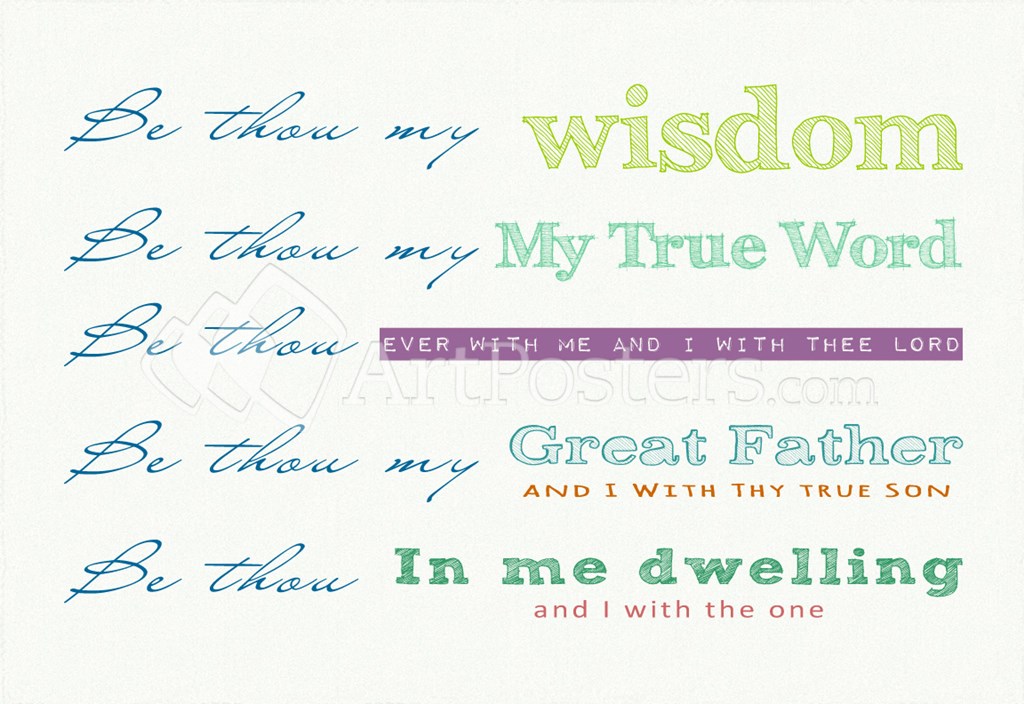 Be thou my wisdom
Be thou my My True Word
Be thou EVER WITH ME AND I WITH THEE LORD
ArtPosters.com
Be thou my Great Father
AND I WITH THY TRUE SON
Be thou In me dwelling
and I with the one